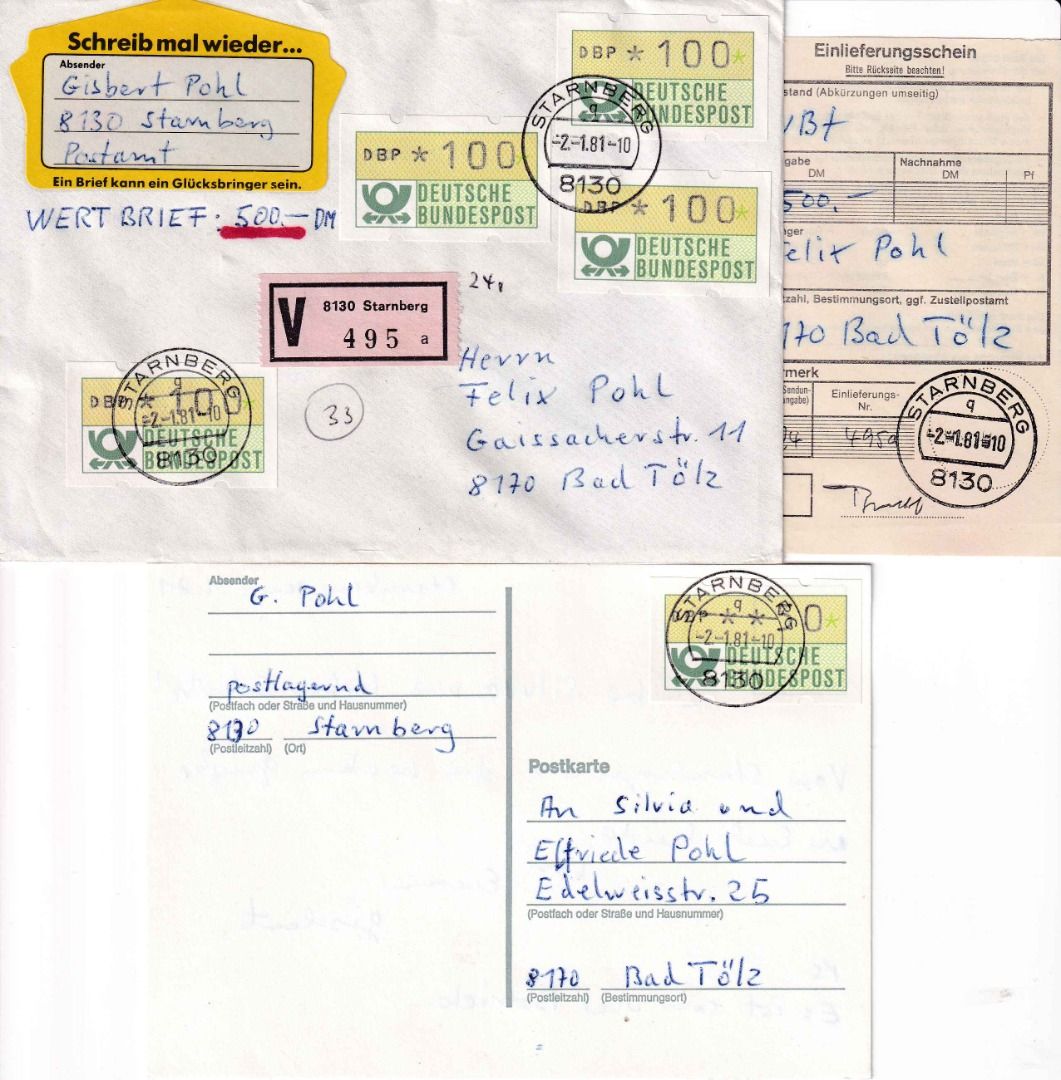 Schreib mal wieder...
Absender
Gisbert Pohl
8130 Starnberg
Postamt
Ein Brief kann ein Glücksbringer sein.
WERT BRIEF: 500.- DM
DBP * 100*
DEUTSCHE
BUNDESPOST
STARNBERG
q
-2.-1.81-10
8130
DBP * 100*
DEUTSCHE
BUNDESPOST
DBP * 100*
DEUTSCHE
BUNDESPOST
V
8130 Starnberg
495 a
24,
33
DBP * 100*
DEUTSCHE
BUNDESPOST
STARNBERG
q
-2.-1.81-10
8130
Herrn
Felix Pohl
Gaissacherstr. 11
8170 Bad Tölz
Einlieferungsschein
Bitte Rückseite beachten!
stand (Abkürzungen umseitig)
VBf
gabe
DM
Nachnahme
DM Pf
500.-
ger
Felix Pohl
zahl, Bestimmungsort, ggf. Zustellpostamt
170 Bad Tölz
rmerk
Sendun-
ngabe)
Einlieferungs-
Nr.
495a
STARNBERG
q
-2.-1.81-10
8130
Absender
G. Pohl
postlagernd
(Postfach oder Straße und Hausnummer)
8130 Starnberg
(Postleitzahl) (Ort)
DBP * * 0*
DEUTSCHE
BUNDESPOST
STARNBERG
q
-2.-1.81-10
8130
Postkarte
An Silvia und
Elfriede Pohl
Edelweisstr. 25
(Postfach oder Straße und Hausnummer)
8170 Bad Tölz
(Postleitzahl) (Bestimmungsort)